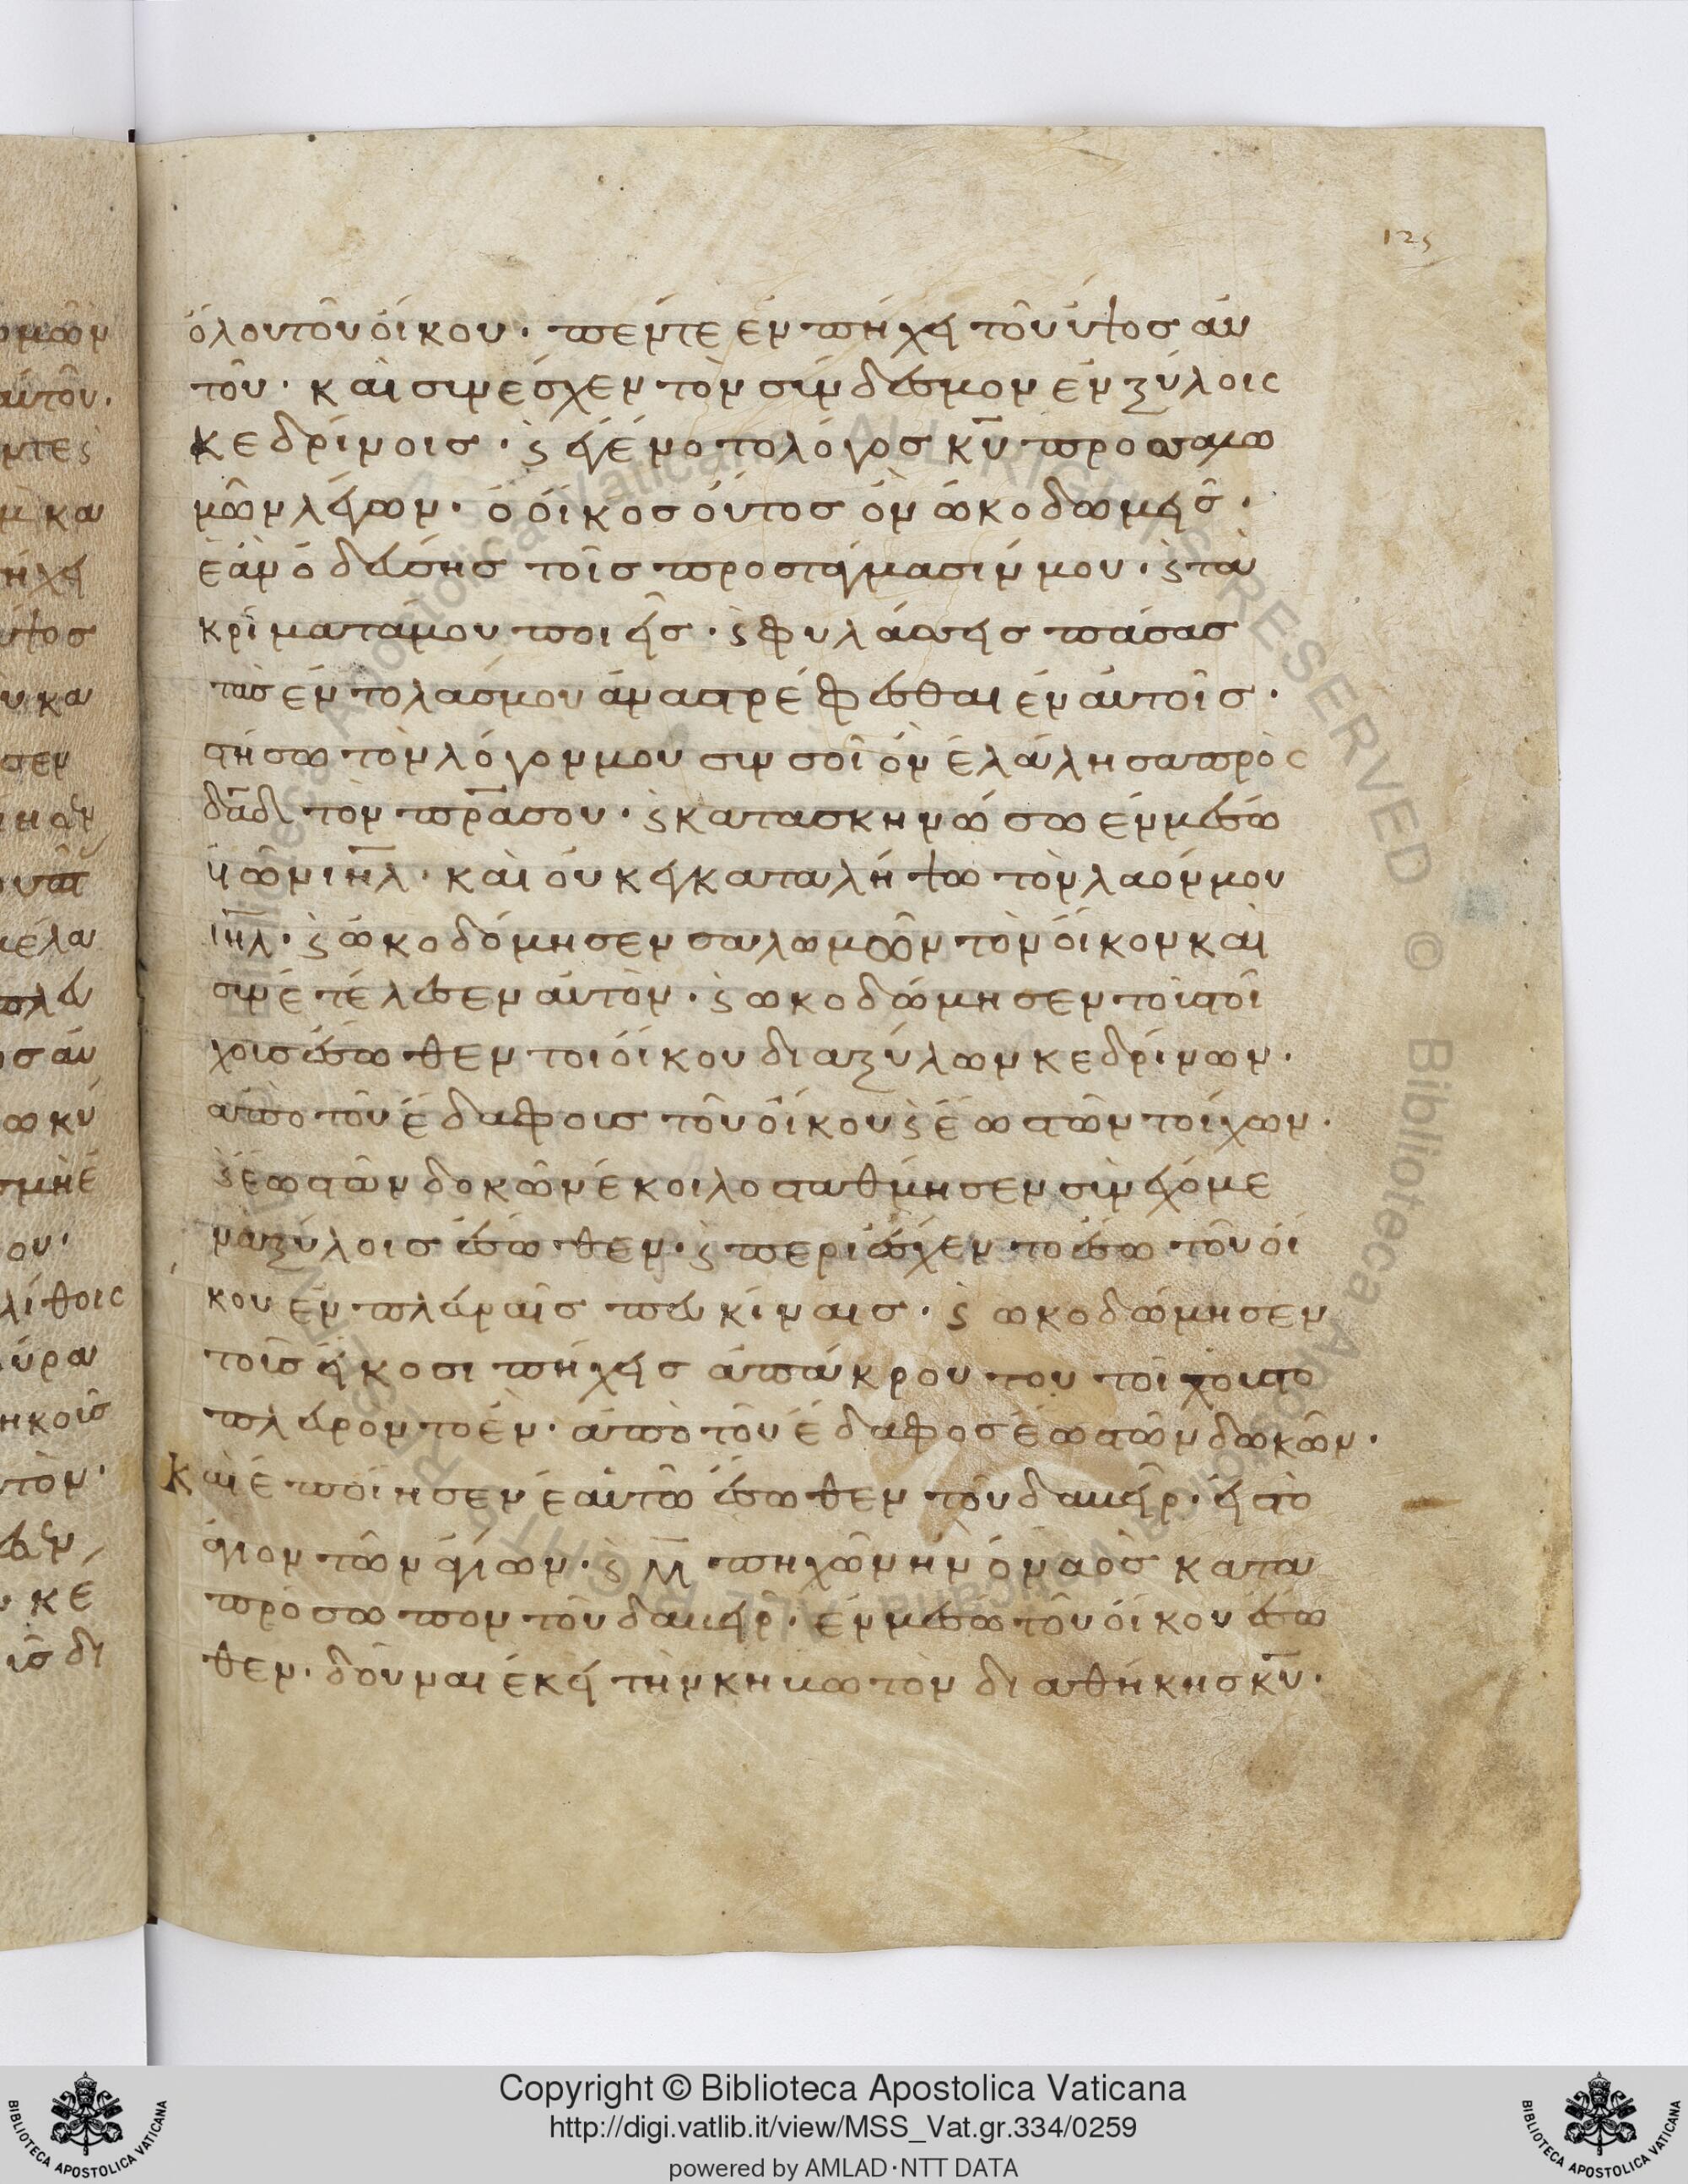 125
ὅλου τοῦ οἴκου · πέντε ἐν πήχει τοῦ ὕψος αὐ
τοῦ · καὶ συνέσχεν τὸν σύνδεσμον ἐν ξύλοις
κεδρίνοις · ϛ ἐγένετο λόγος κ̅υ̅ προς σαλω
μῶν λέγων · ὁ οἶκος οὗτος ὃν ὠκοδωμεῖς ·
ἐὰν ὁδεύσης τοῖς προστάγμασίν μου · ϛ τὰ
κρίματά μου ποιεῖς · ϛ φυλάσσεις πάσας
τὰς ἐντολάς μου ἀναστρέφεσθαι ἐν αὐτοῖς ·
στήσω τὸν λόγον μου σὺν σοὶ ὃν ἐλάλησα πρὸς
δ̅α̅δ̅ τὸν π̅ρ̅α̅ σου · ϛ κατασκηνώσω ἐν μέσω
ὑιῶν ι̅η̅λ̅ · καὶ οὐκ ἐγκαταλήψω τὸν λαόν μου
ι̅η̅λ̅ · ϛ ὠκοδόμησεν σαλωμῶν τὸν οἶκον καὶ
συνετέλεσεν αὐτὸν · ϛ ωκοδώμησεν τοὺς τοί
χους ἔσωθεν τοῦ οἴκου διὰ ξύλων κεδρίνων ·
ἀπὸ τοῦ ἐδάφους τοῦ οἴκου ϛ ἕως τῶν τοίχων ·
ϛ ἕως τῶν δοκῶν ἐκοιλοστάθμησεν συνεχόμε
να ξύλοις ἔσωθεν · ϛ περιέσχεν το ἔσω τοῦ οἴ
κου ἐν πλευραῖς πευκίναις · ϛ ωκοδώμησεν
τοὺς εἴκοσι πήχεις ἀπ' ἄκρου του τοίχους το
πλευρον το ἓν · ἀπὸ τοῦ ἐδάφος ἕως τῶν δωκῶν ·
Καὶ ἐποίησεν ἑαυτῶ ἔσωθεν τοῦ δαβεὶρ · εἰς τὸ
ἅγιον τῶν ἁγίων · ϛ μ̅ πηχῶν ἦν ὁ ναὸς κατὰ
πρόσωπον τοῦ δαβεὶρ · ἐν μέσω τοῦ οἴκου ἔσω
θεν · δοῦναι ἐκεῖ τὴν κηβωτὸν διαθήκης κ̅υ̅ ·
Copyright © Biblioteca Apostolica Vaticana
http://digi.vatlib.it/view/MSS_Vat.gr.334/0259
powered by AMLAD·NTT DATA